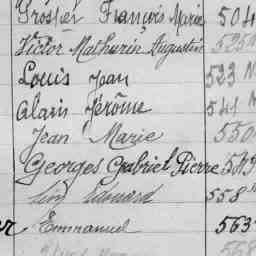 François Marie 504
Victor Mathurin Augustin 525
Louis Jean 523 N
Alain Jérôme 541 N
Jean Marie 550
Georges Gabriel Pierre 563
Edouard 558
Emmanuel 563
568